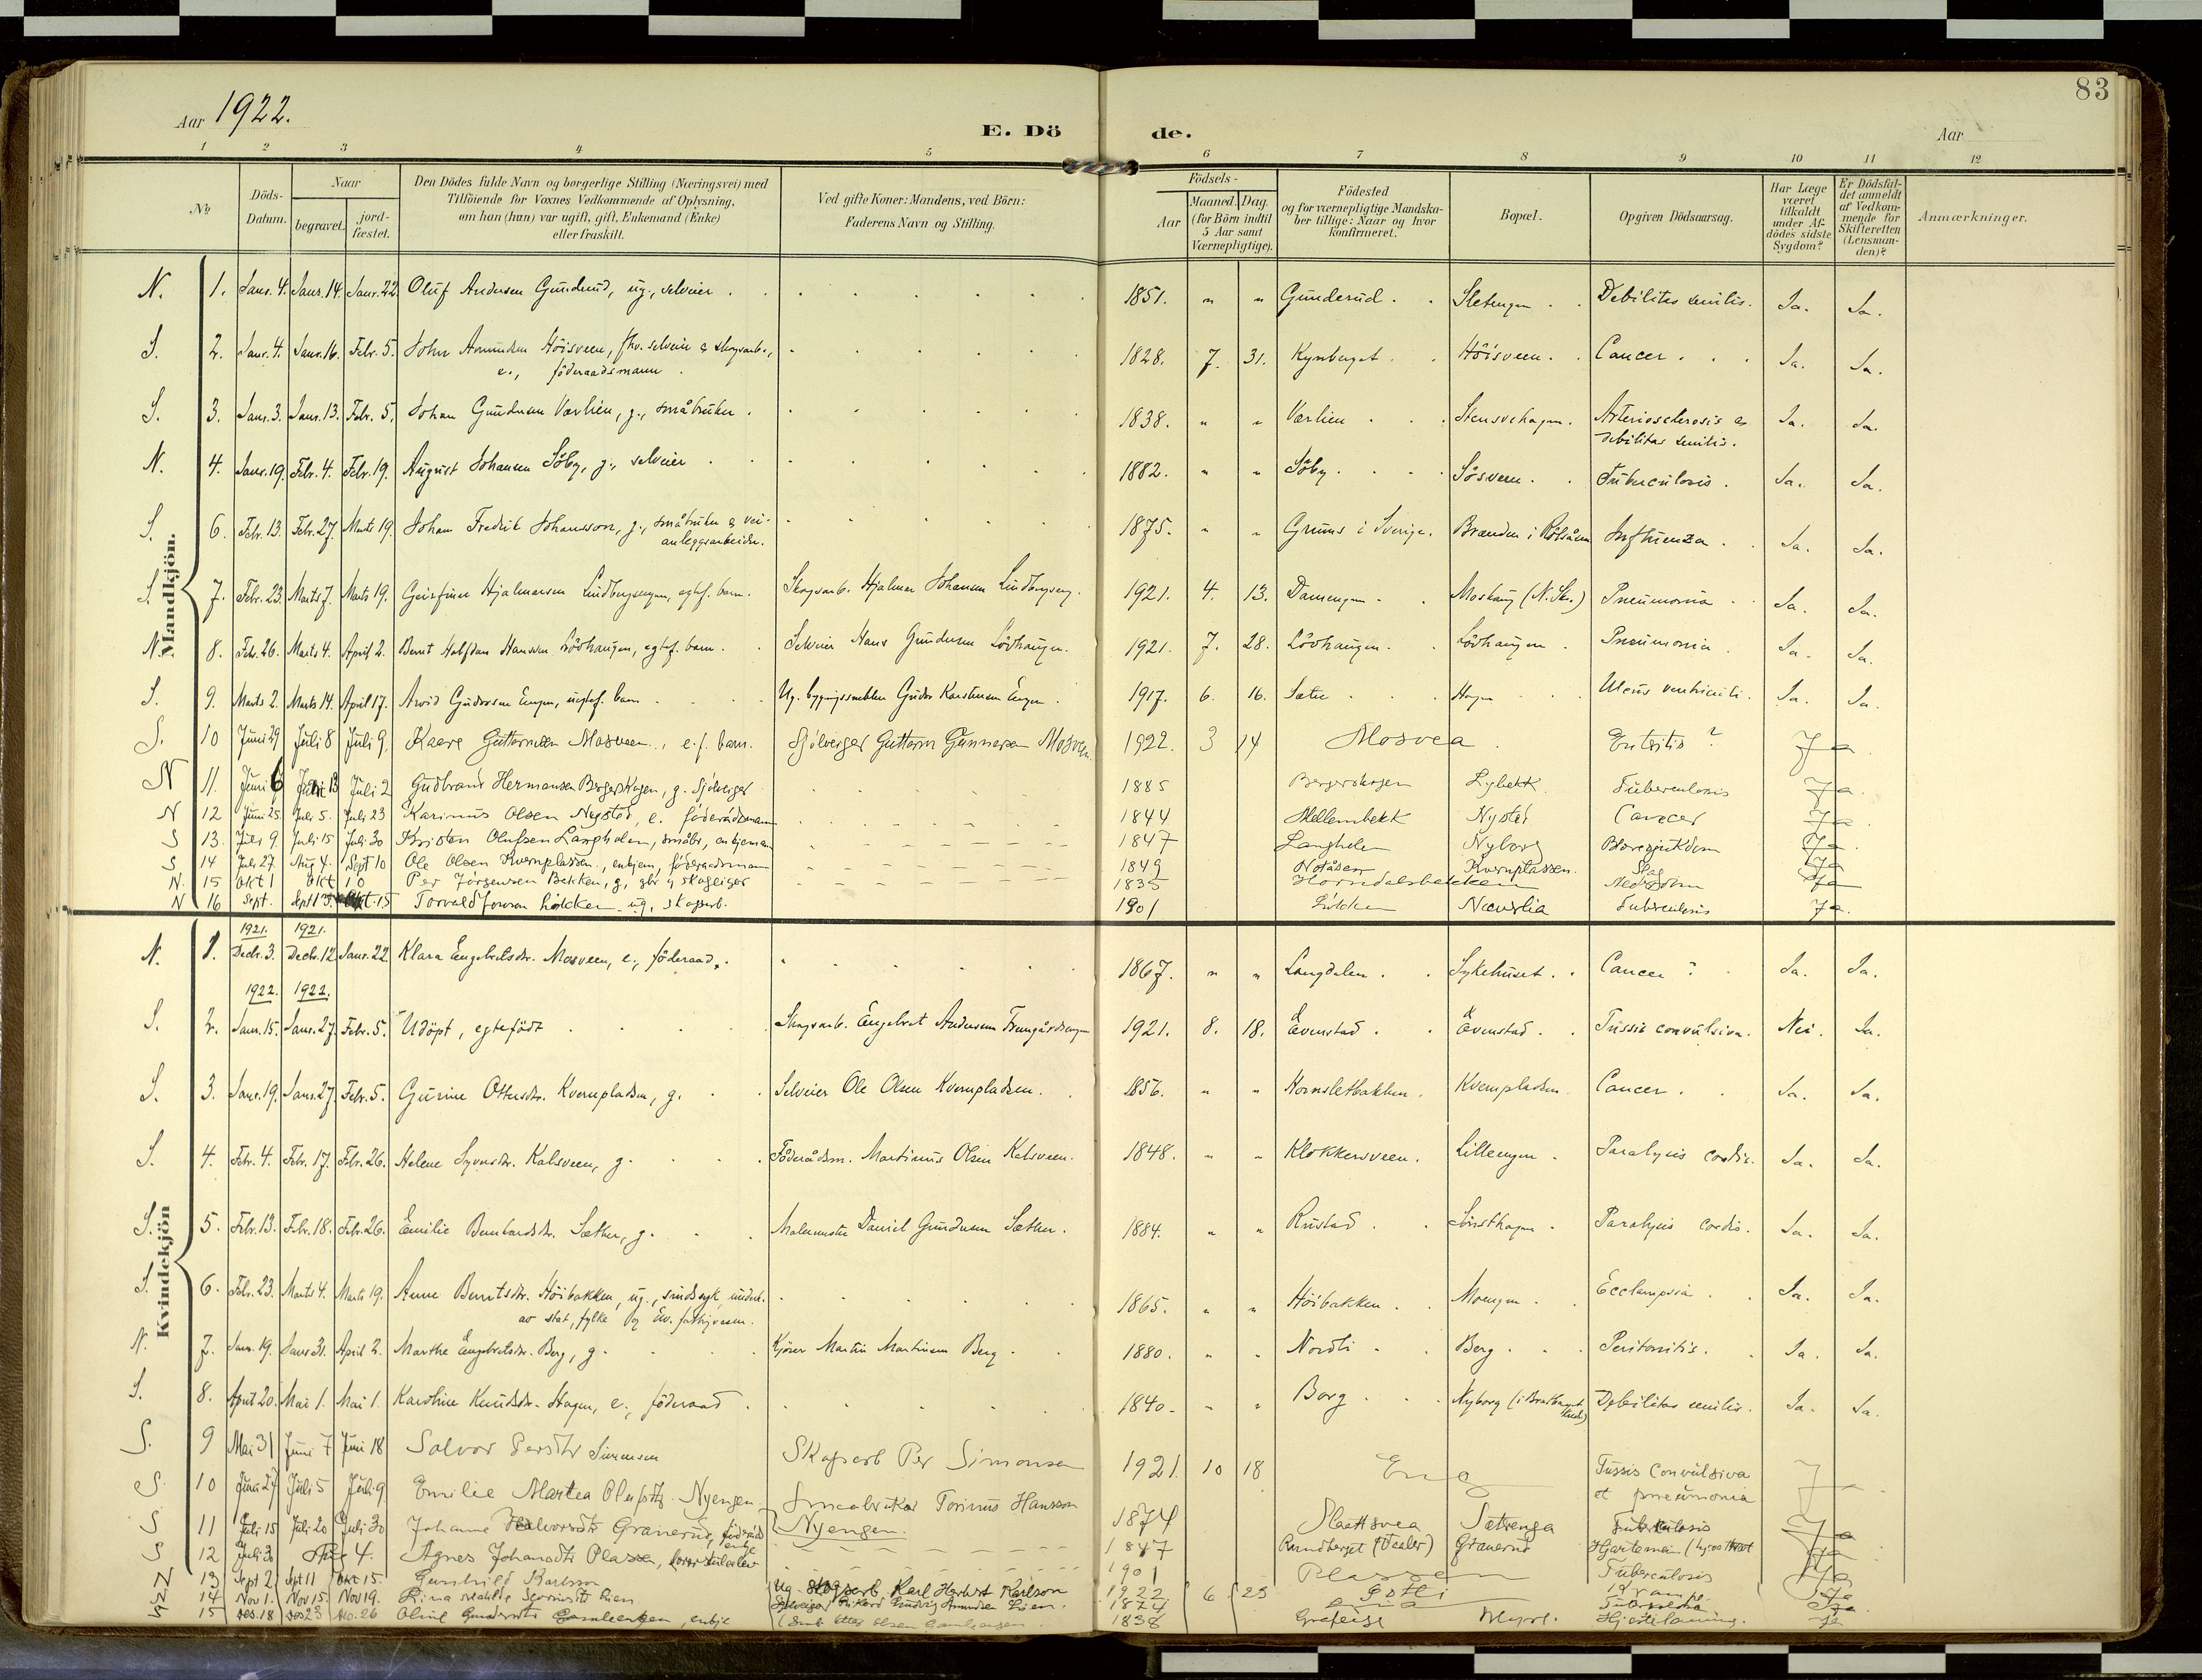 83
Aar 1922.
E. Dö
de.
Aar
1 2 3 4 5 6 7 8 9 10 11 12
No.
Döds-Datum.
Naar
begravet.
jord-fæstet.
Den Dödes fulde Navn og borgerlige Stilling (Næringsvei) med
Tilföiende for Voxnes Vedkommende af Oplysning,
om han (hun) var ugift, gift, Enkemand (Enke)
eller fraskilt.
Ved gifte Koner: Mandens, ved Börn:
Faderens Navn og Stilling.
Födsels-
Aar
Maaned. Dag.
(for Börn indtil
5 Aar samt
Værnepligtige).
Födested
og for værnepligtige Mandska-
ber tillige: Naar og hvor
konfirmeret.
Bopæl.
Opgiven Dödsaarsag.
Har Læge
været
tilkaldt
under Af-
dödes sidste
Sygdom?
Er Dödsfal-
det anmeldt
af Vedkom-
mende for
Skifteretten
(Lensman-
den)?
Anmærkninger.
Mandkjön.
N. 1. Janr. 4. Janr. 14. Janr. 22. Oluf Andersen Gunderud, ug., selveier 1851. " " Gunderud Sletengen Debilitas senilis. Ja. Ja.
S. 2. Janr. 4. Janr. 16. Febr. 5. John Amundsen Höisveen, fhv. selveier & skogsarb., 1828. 7. 31. Kynberget Höisveen. Cancer Ja. Ja.
e., föderaadsmann
S. 3. Janr. 3. Janr. 13. Febr. 5. Johan Gundersen Værlien, g., småbruker 1838. " " Værlien Stensvehagen. Arteriosclerosis & Ja. Ja.
debilitas senilis.
N. 4. Janr. 19. Febr. 4. Febr. 19. August Johansen Söby, g., selveier 1882. " " Söby Sösveen. Tuberculosis. Ja. Ja.
S. 6. Febr. 13. Febr. 27. Marts 19. Johan Fredrik Johansson, g., småbruker & vei- 1875. " " Grums i Sverige. Brænden i Influenza Ja. Ja.
anleggsarbeider.
S. 7. Febr. 23. Marts 7. Marts 19. Geirfinn Hjalmarsen Lindbergsengen, egtef. barn. Skogsarb. Hjalmar Johansen Lindbergseng. 1921. 4. 13. Damengen Moskaug (N. Skr.) Pneumonia Ja. Ja.
N. 8. Febr. 26. Marts 4. April 2. Bernt Halfdan Hansen Lövhaugen, egtef. barn. Selveier Hans Gundersen Lövhaugen. 1921. 7. 28. Lövhaugen. Lövhaugen Pneumonia. Ja. Ja.
S. 9. Marts 2. Marts 14. April 17. Arvid Gudorsen Engen, uegtef. barn Ug. bygningssnekker Gudor Karstensen Engen. 1917. 6. 16. Sæter Hagen Ulcus ventriculi. Ja. Ja.
S. 10 Juni 29 Juli 8 Juli 9. Kaare Guttormsen Mosveen, e.f. barn. Sjölveiger Guttorm Gunnarsen Mosveen 1922 3 14 Mosvea Entritis ? Ja
N 11. Juni 6 Juni 13 Juli 2 Gudbrand Hermansen Bergerskogen, g. sjölveiger 1885 Bergerskogen Lybekk Tuberculosis Ja
N 12 Juni 25. Juli 5. Juli 23 Karinus Olsen Nysted, e. föderådsmann 1844 Mellembekk Nysted Cancer Ja
S 13. Juli 9. Juli 15 Juli 30 Kristen Olufsen Langholen, småbr., enkjemann 1847 Langholen Nyborg Blæresjukdom Ja
S 14 Juli 27. Aug. 4. Sept 10 Ole Olsen Kvernplassen, enkjem, föderaadsmann 1849 Notåsen Kvernplassen. Slag Ja
N. 15 Okt 1 Okt 10 Per Jörgensen Bekken, g, gbr og skogeiger 1835 Horndalsbekken Ja
N 16 Sept. Okt. 15 Torvald Lökken ug. skogsarb. 1901 Lökken Næverlia Tuberculosis Ja.
Kvindekjön
1921. 1921.
N. 1. Decbr. 3. Decbr. 12 Janr. 22 Klara Engebretsdtr. Mosveen, e., föderaad. 1867. " " Langdalen Sykehuset. Cancer ? Ja. Ja.
1922. 1922.
S. 2. Janr. 15. Janr. 27. Febr. 5. Udöpt, egtefödt Skogsarb. Engebret Andersen 1921. 8. 18. Evenstad Evenstad Tussis convulsiva. Nei. Ja.
S. 3. Janr. 19. Janr. 27. Febr. 5. Gurine Ottersdtr. Kvernpladsen, g. Selveier Ole Olsen Kvernpladsen. 1856. " " Hornsletbakken. Kvernpladsen. Cancer. Ja. Ja.
S. 4. Febr. 4. Febr. 17. Febr. 26. Helene Syversdtr. Kalsveen, g. Föderådsm. Martinus Olsen Kalsveen. 1848. " " Klokkersveen. Lillengen Paralysis cordis. Ja. Ja.
S. 5. Febr. 13. Febr. 18. Febr. 26. Emilie Bernhardsdtr. Sæther, g. Malermester Daniel Gundersen Sæther. 1884. " " Rustad Paralysis cordis. Ja. Ja.
S. 6. Febr. 23. Marts 4. Marts 19. Anne Berntsdtr. Höibakken, ug., sindssyk, underh. 1865. " " Höibakken Moengen Ecclampsia Ja. Ja.
av stat, fylke og Elv. fattigvesen.
N. 7. Janr. 19. Janr. 31. April 2. Marthe Engebretsdtr. Berg, g. Kjörer Martin Martinsen Berg 1880. " " Nordli Berg Peritonitis. Ja. Ja.
S. 8. April 20. Mai 1. Mai 1. Karoline Knudsdtr. Hagen, e., föderaad 1840. " " Borg Nyborg Debilitas senilis. Ja. Ja.
S. 9 Mai 31 Juni 7 Juni 18 Solvor Persdtr Simensen Skogsarb Per Simonsen 1921. 10 18 Eng Tussis Convulsiva Ja
et pneumonia
S 10 Juni 27 Juli 5 Juli 9 Emilie Martea Olufsdtr. Nyengen Smaabruker Torinus Hansson 1874 Slaattsvea Sætrenga Tuberkulosis Ja
Nyengen.
S 11 Juli 15 Juli 20 Juli 30 Johanne Halvorsdtr Granerud, föderåd 1847 Rundberget (Vaaler) Granerud Ja
enke
S 12 Juli 30 Aug 4. Agnes Johansdtr Plassen, 1901 Plassen Tuberculosis Ja
N 13 Sept 2 Sept 11 Okt 15. Gunhild Karlsson Ug. skogsarb. Karl Herbert Karlson 1922 6 23 Ja
N 14 Nov 1. Nov 15. Nov 19. Lien Ludvig Amundsen Lien. 1874 Ja
S 15 Des. 18 Des 23 Des. 26 enkje 1838 Ja